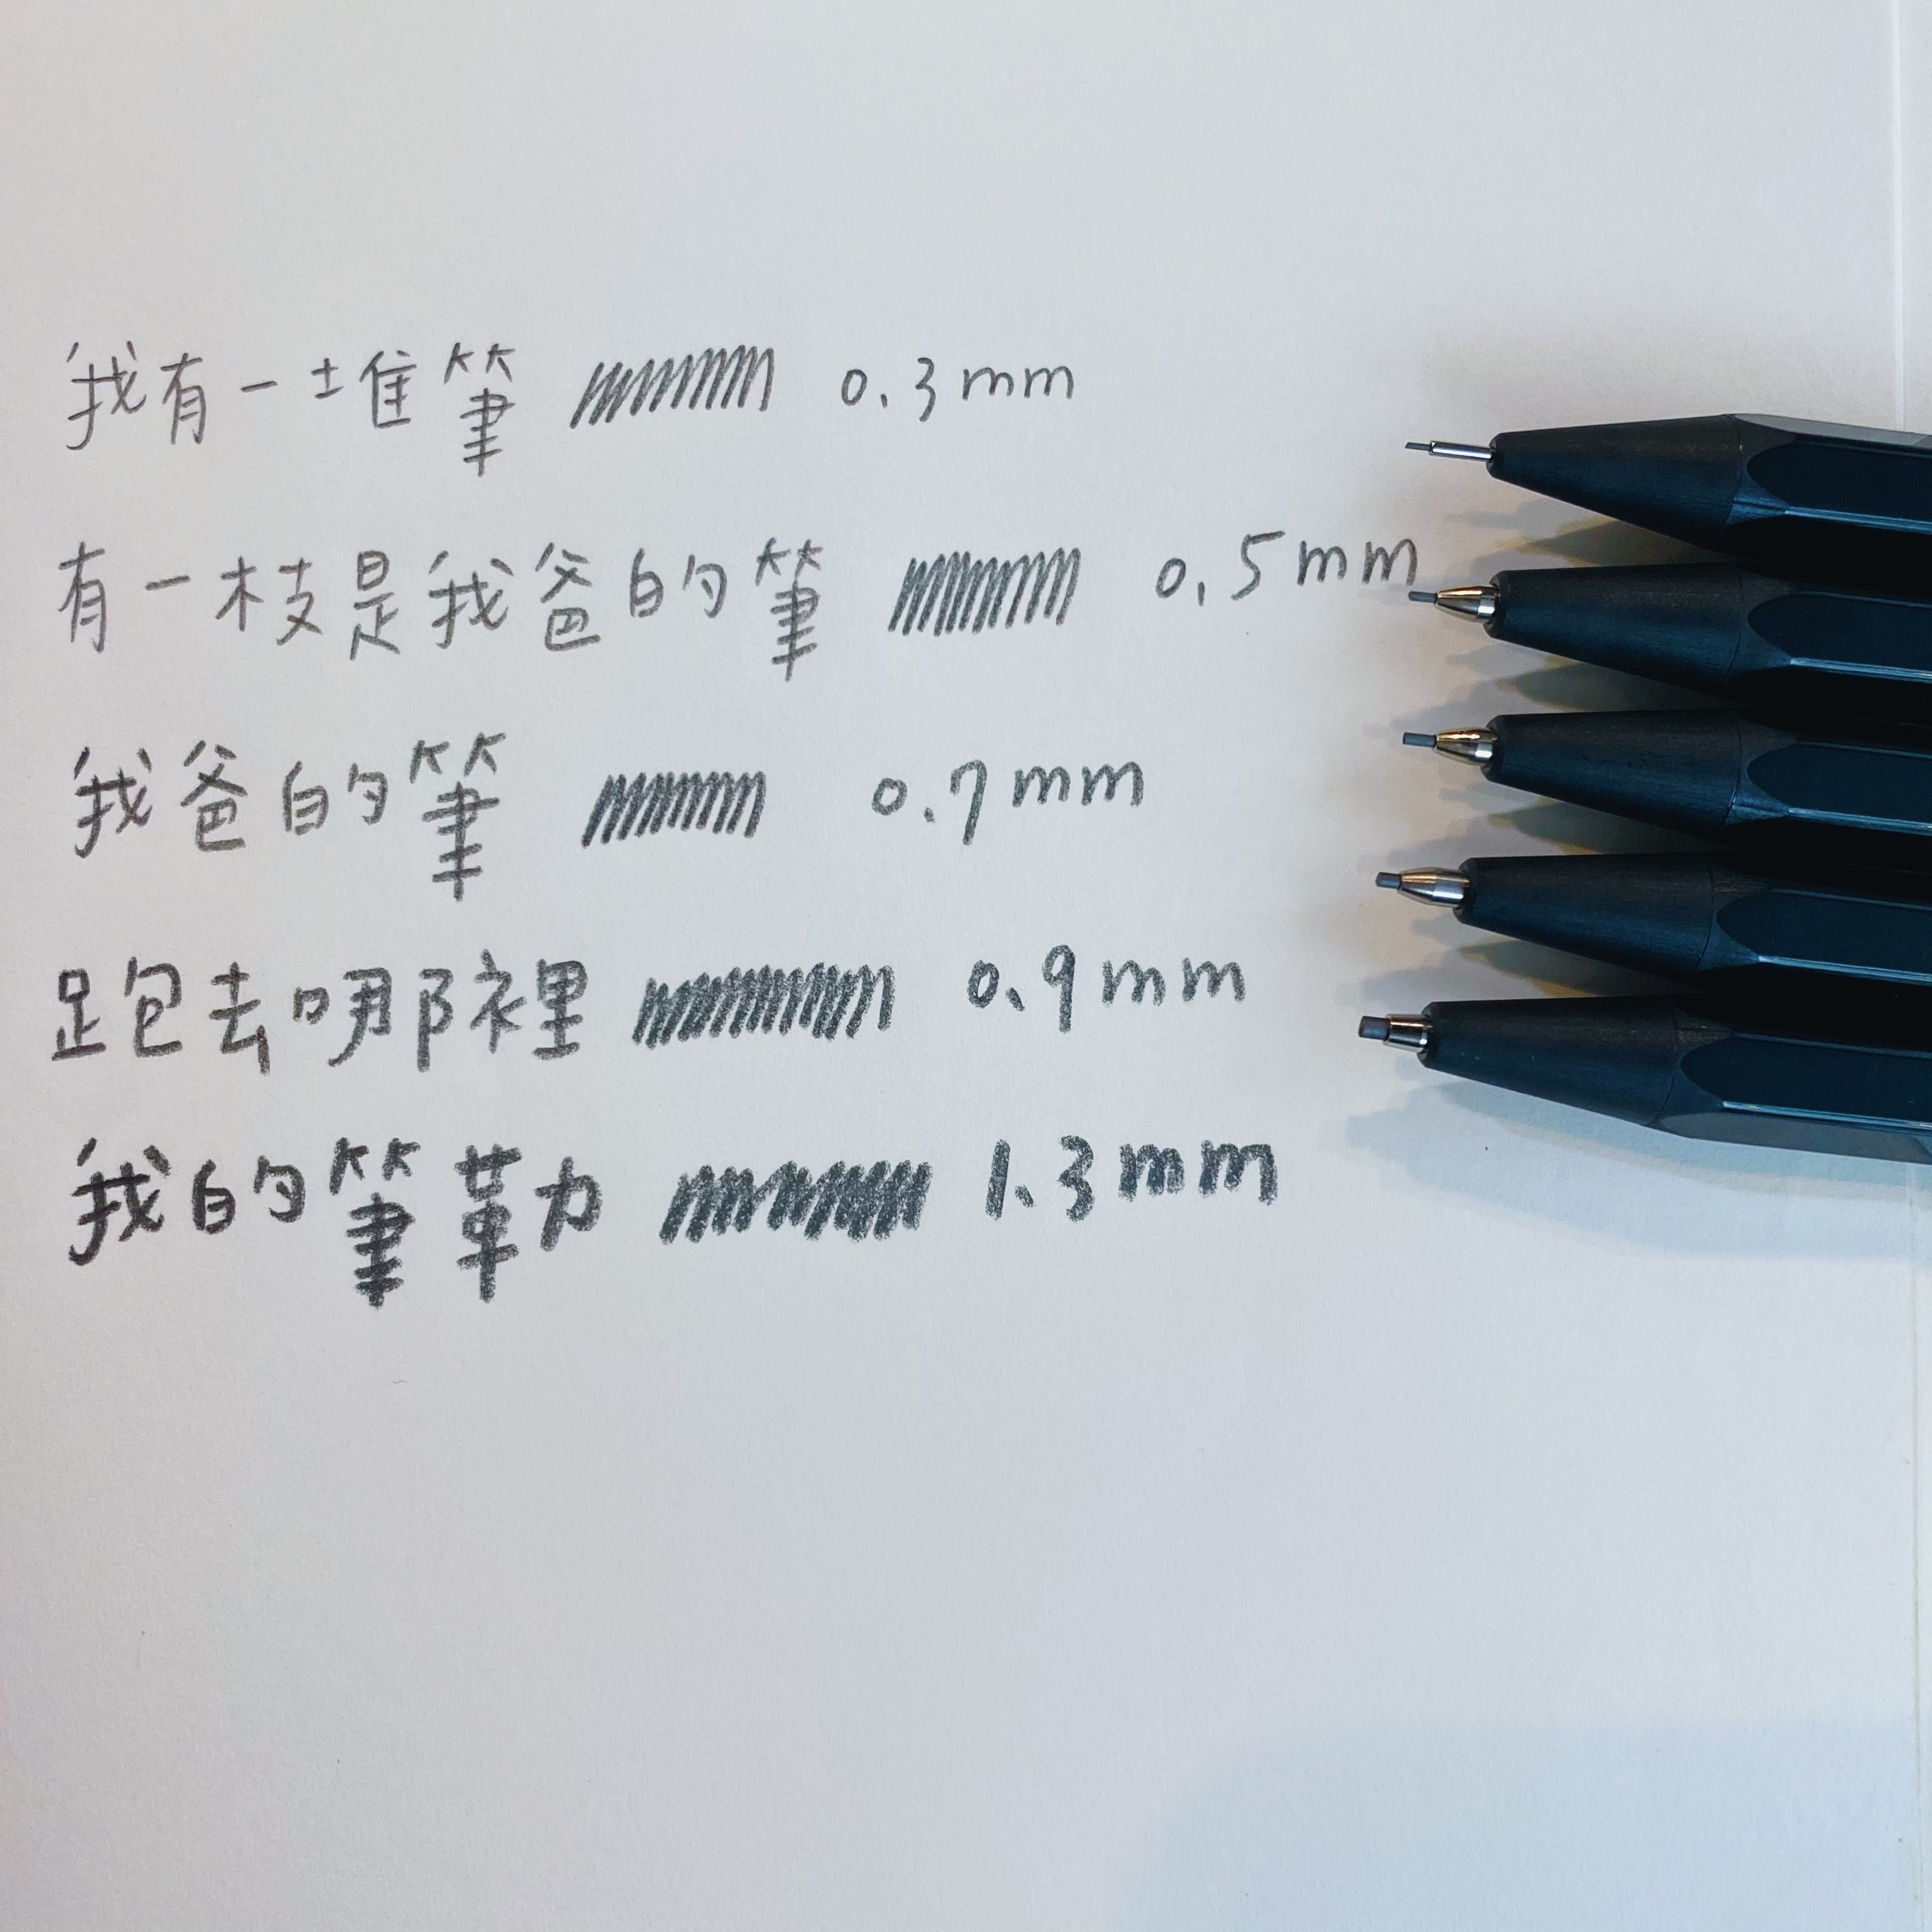 我有一堆筆 0.3mm
有一枝是我爸的筆 0.5mm
我爸的筆 0.7mm
跑去哪裡 0.9mm
我的筆勒 1.3mm